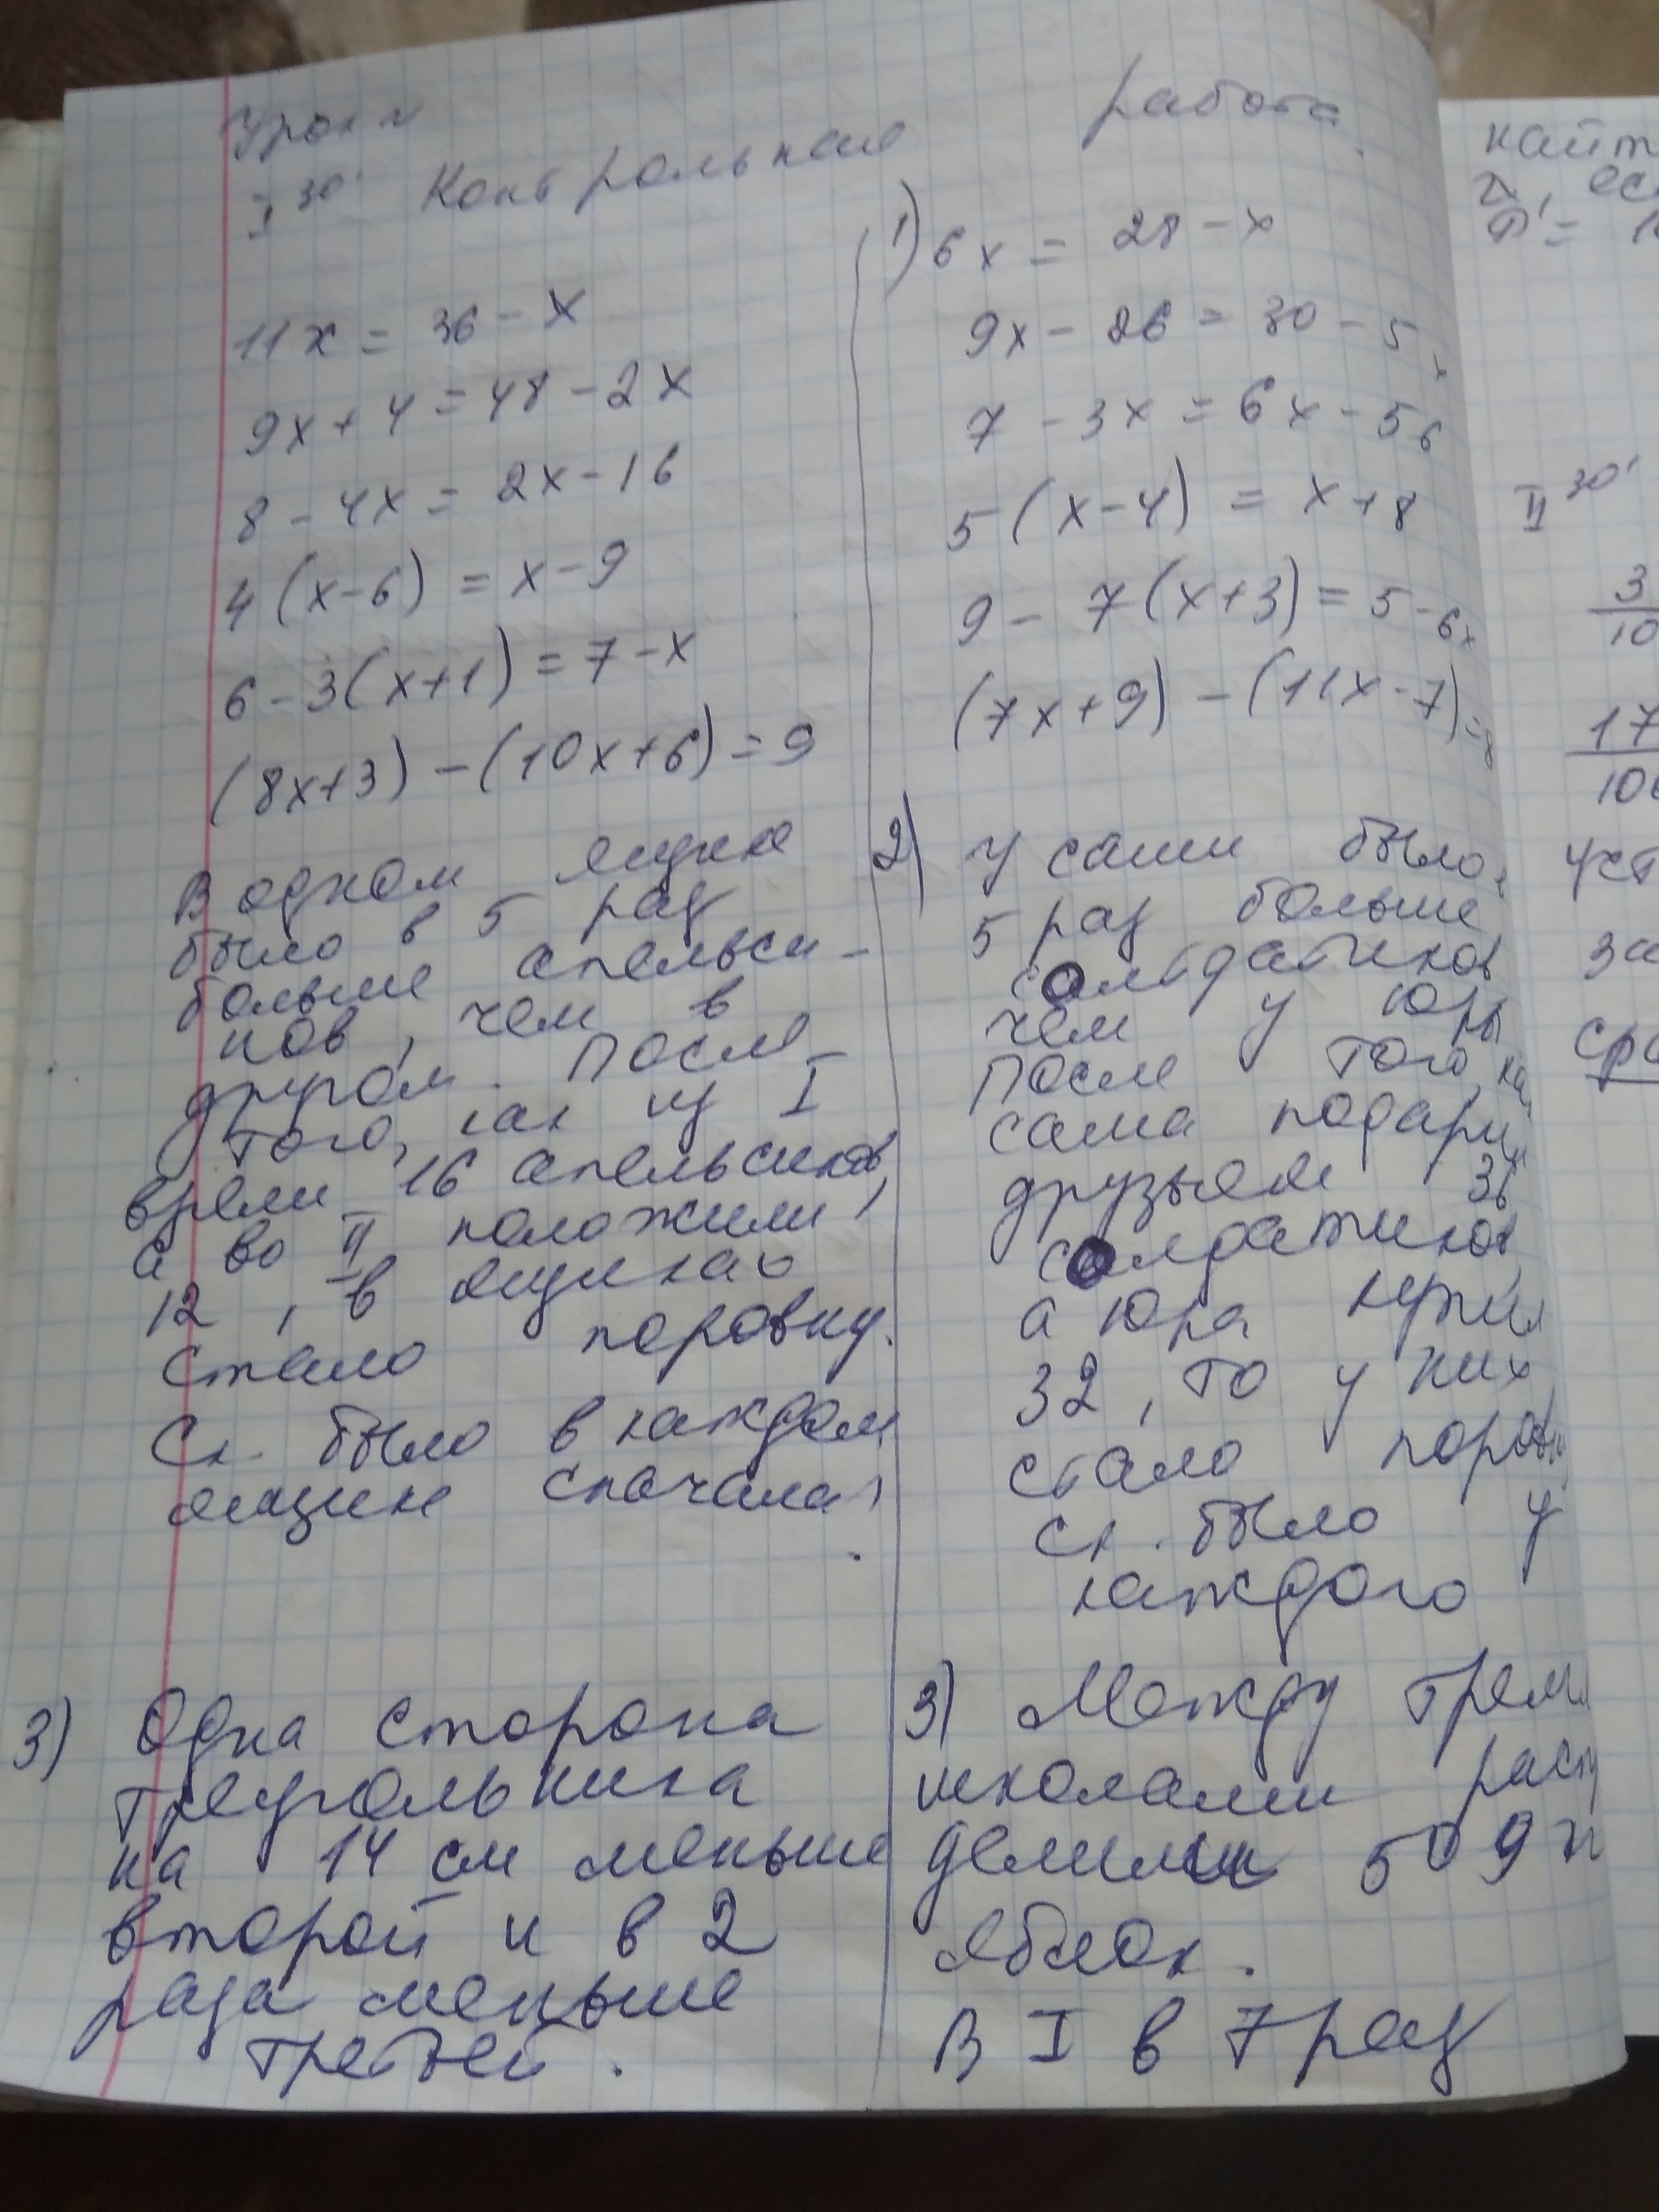 Уроки
I 30' Контрольная работа.
11x = 36 - x
9x + 4 = 48 - 2x
8 - 4x = 2x - 16
4(x-6) = x - 9
6 - 3(x+1) = 7 - x
(8x+3) - (10x+6) = 9
В одном ящике
было в 5 раз
больше апельси-
нов, чем в
другом. После
того, как из I
взяли 16 апельсинов,
а во II положили
12, в ящиках
стало поровну.
Ск. было в каждом
ящике сначала
3) Одна сторона
треугольника
на 14 см меньше
второй и в 2
раза меньше
третьей.
1) 6x = 28 - x
9x - 26 = 30 - 5x
7 - 3x = 6x - 56
5(x-4) = x + 8
9 - 7(x+3) = 5 - 6x
(7x+9) - (11x-7) = 8
2) У саши было
5 раз больше
солдатиков
чем у Юры
После того, ка
саша подарил
друзьям 36
солдатиков
а Юра купил
32, то у них
стало поровну
Ск. было у
каждого
3) Между трем
школами расп
делили 509 п
яблок.
В I в 7 раз
найт
если
II 30'
3
10
17
100
уст
за
сра